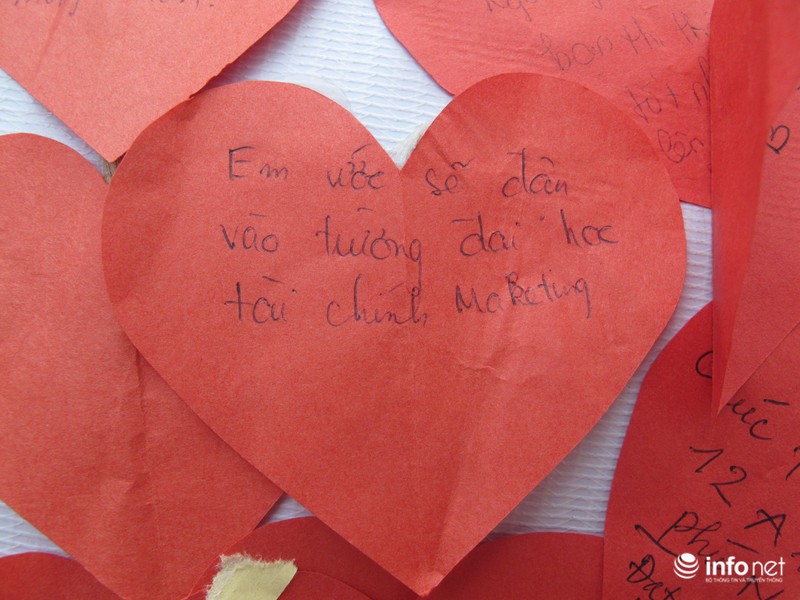 Em ước sẽ đân
vào tường đai học
tài chính Maketing
bạn thi
tốt
12 A
infonet
BỘ THÔNG TIN VÀ TRUYỀN THÔNG